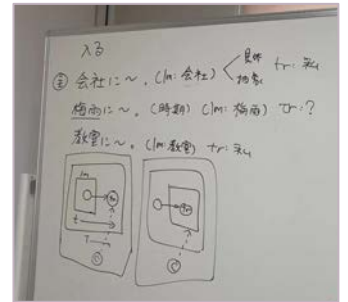 入る
㊣ 会社に〜. (lm: 会社) 具体 tr: 私
抽象
梅雨に〜. (時期) (lm: 梅雨) tr: ?
教室に〜. (lm: 教室) tr: 私
lm
tr
tr
t
T
C
C